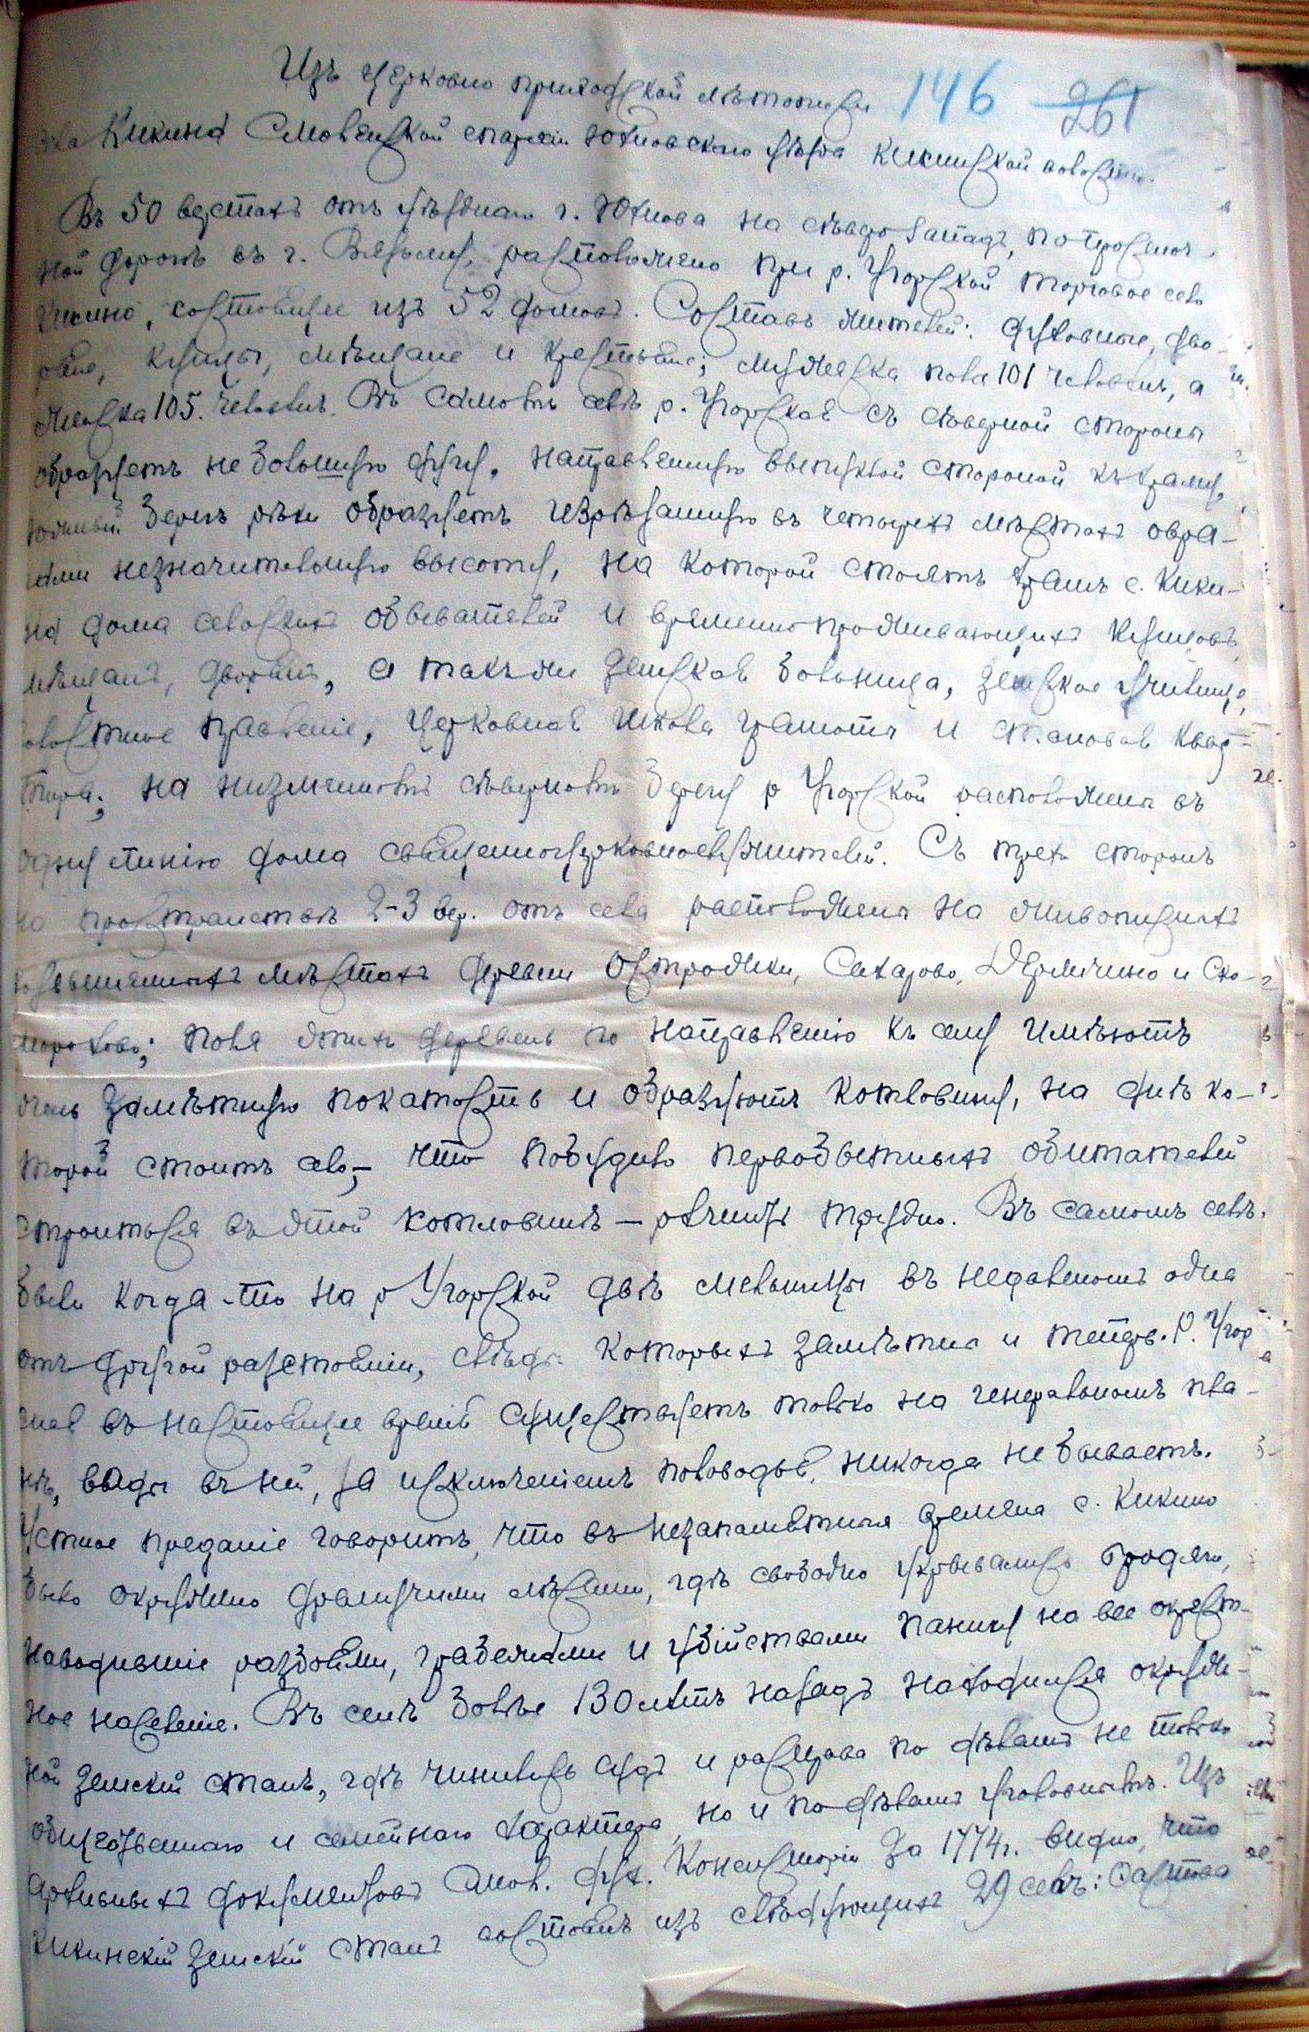 Изъ церковно приходской лѣтописи 146 261
села Кикина Смоленской епархiи Юхновскаго уѣзда Кикинской волости.
Въ 50 верстахъ отъ уѣзднаго г. Юхнова на сѣверо западъ, по просёлоч-
ной дорогѣ въ г. Вязьму, расположено при р. Угорской торговое село
Кикино, состоящее изъ 52 домовъ. Составъ жителей: духовные, дво-
ряне, купцы, мѣщане и крестьяне; мужеска пола 101 человекъ, а
женска 105. человекъ. Въ самомъ селѣ р. Угорская съ сѣверной стороны
образуетъ небольшую дугу, направленную выпуклой стороной къ храму,
южный берегъ рѣки образуетъ изрѣзанную въ четырехъ мѣстахъ овра-
гами незначительную высоту, на которой стоятъ храмъ с. Кики-
на дома сельскихъ обывателей и временно проживающихъ купцовъ,
мѣщанъ, дворянъ, а также земская больница, земское училище,
волостное правленiе, церковная школа грамоты и становая квар-
тира; на низменномъ сѣверномъ берегу р Угорской расположены въ
одну линiю дома священноцерковнослужителей. Съ трехъ сторонъ
на пространствѣ 2-3 вер. отъ села расположены на живописныхъ
возвышенныхъ мѣстахъ деревни Острожки, Сахарово, Дермичино и Ско-
морохово; поля этихъ деревень по направленiю къ селу имѣютъ
очень замѣтную покатость и образуютъ котловину, на днѣ ко-
торой стоитъ село,– что побудило первобытныхъ обитателей
строиться въ этой котловинѣ – рѣшить трудно. Въ самомъ селѣ.
были когда-то на р Угорской двѣ мельницы въ недалекомъ одна
отъ другой разстоянiи, слѣды которыхъ замѣтны и теперь. Р. Угор
ская въ настоящее время существуетъ только на генеральномъ пла-
нѣ, воды въ ней, за исключенiемъ половодья, никогда не бываетъ.
Устное преданiе говоритъ, что въ незапамятныя времена с. Кикино
было окружено дремучими лѣсами, гдѣ свободно укрывались бродяги,
наводившiе разбоями, грабежами и убiйствами панику на все окрест-
ное населенiе. Въ селѣ болѣе 130 лѣтъ назадъ находился окруж-
ной земскiй станъ, гдѣ чинились судъ и расправа по дѣламъ не только
общественнаго и семейнаго характера, но и по дѣламъ уголовнымъ. Изъ
архивныхъ документовъ Смол. дух. Консисторiи за 1774г. видно, что
Кикинскiй земскiй станъ состоялъ изъ слѣдующихъ 29 селъ: